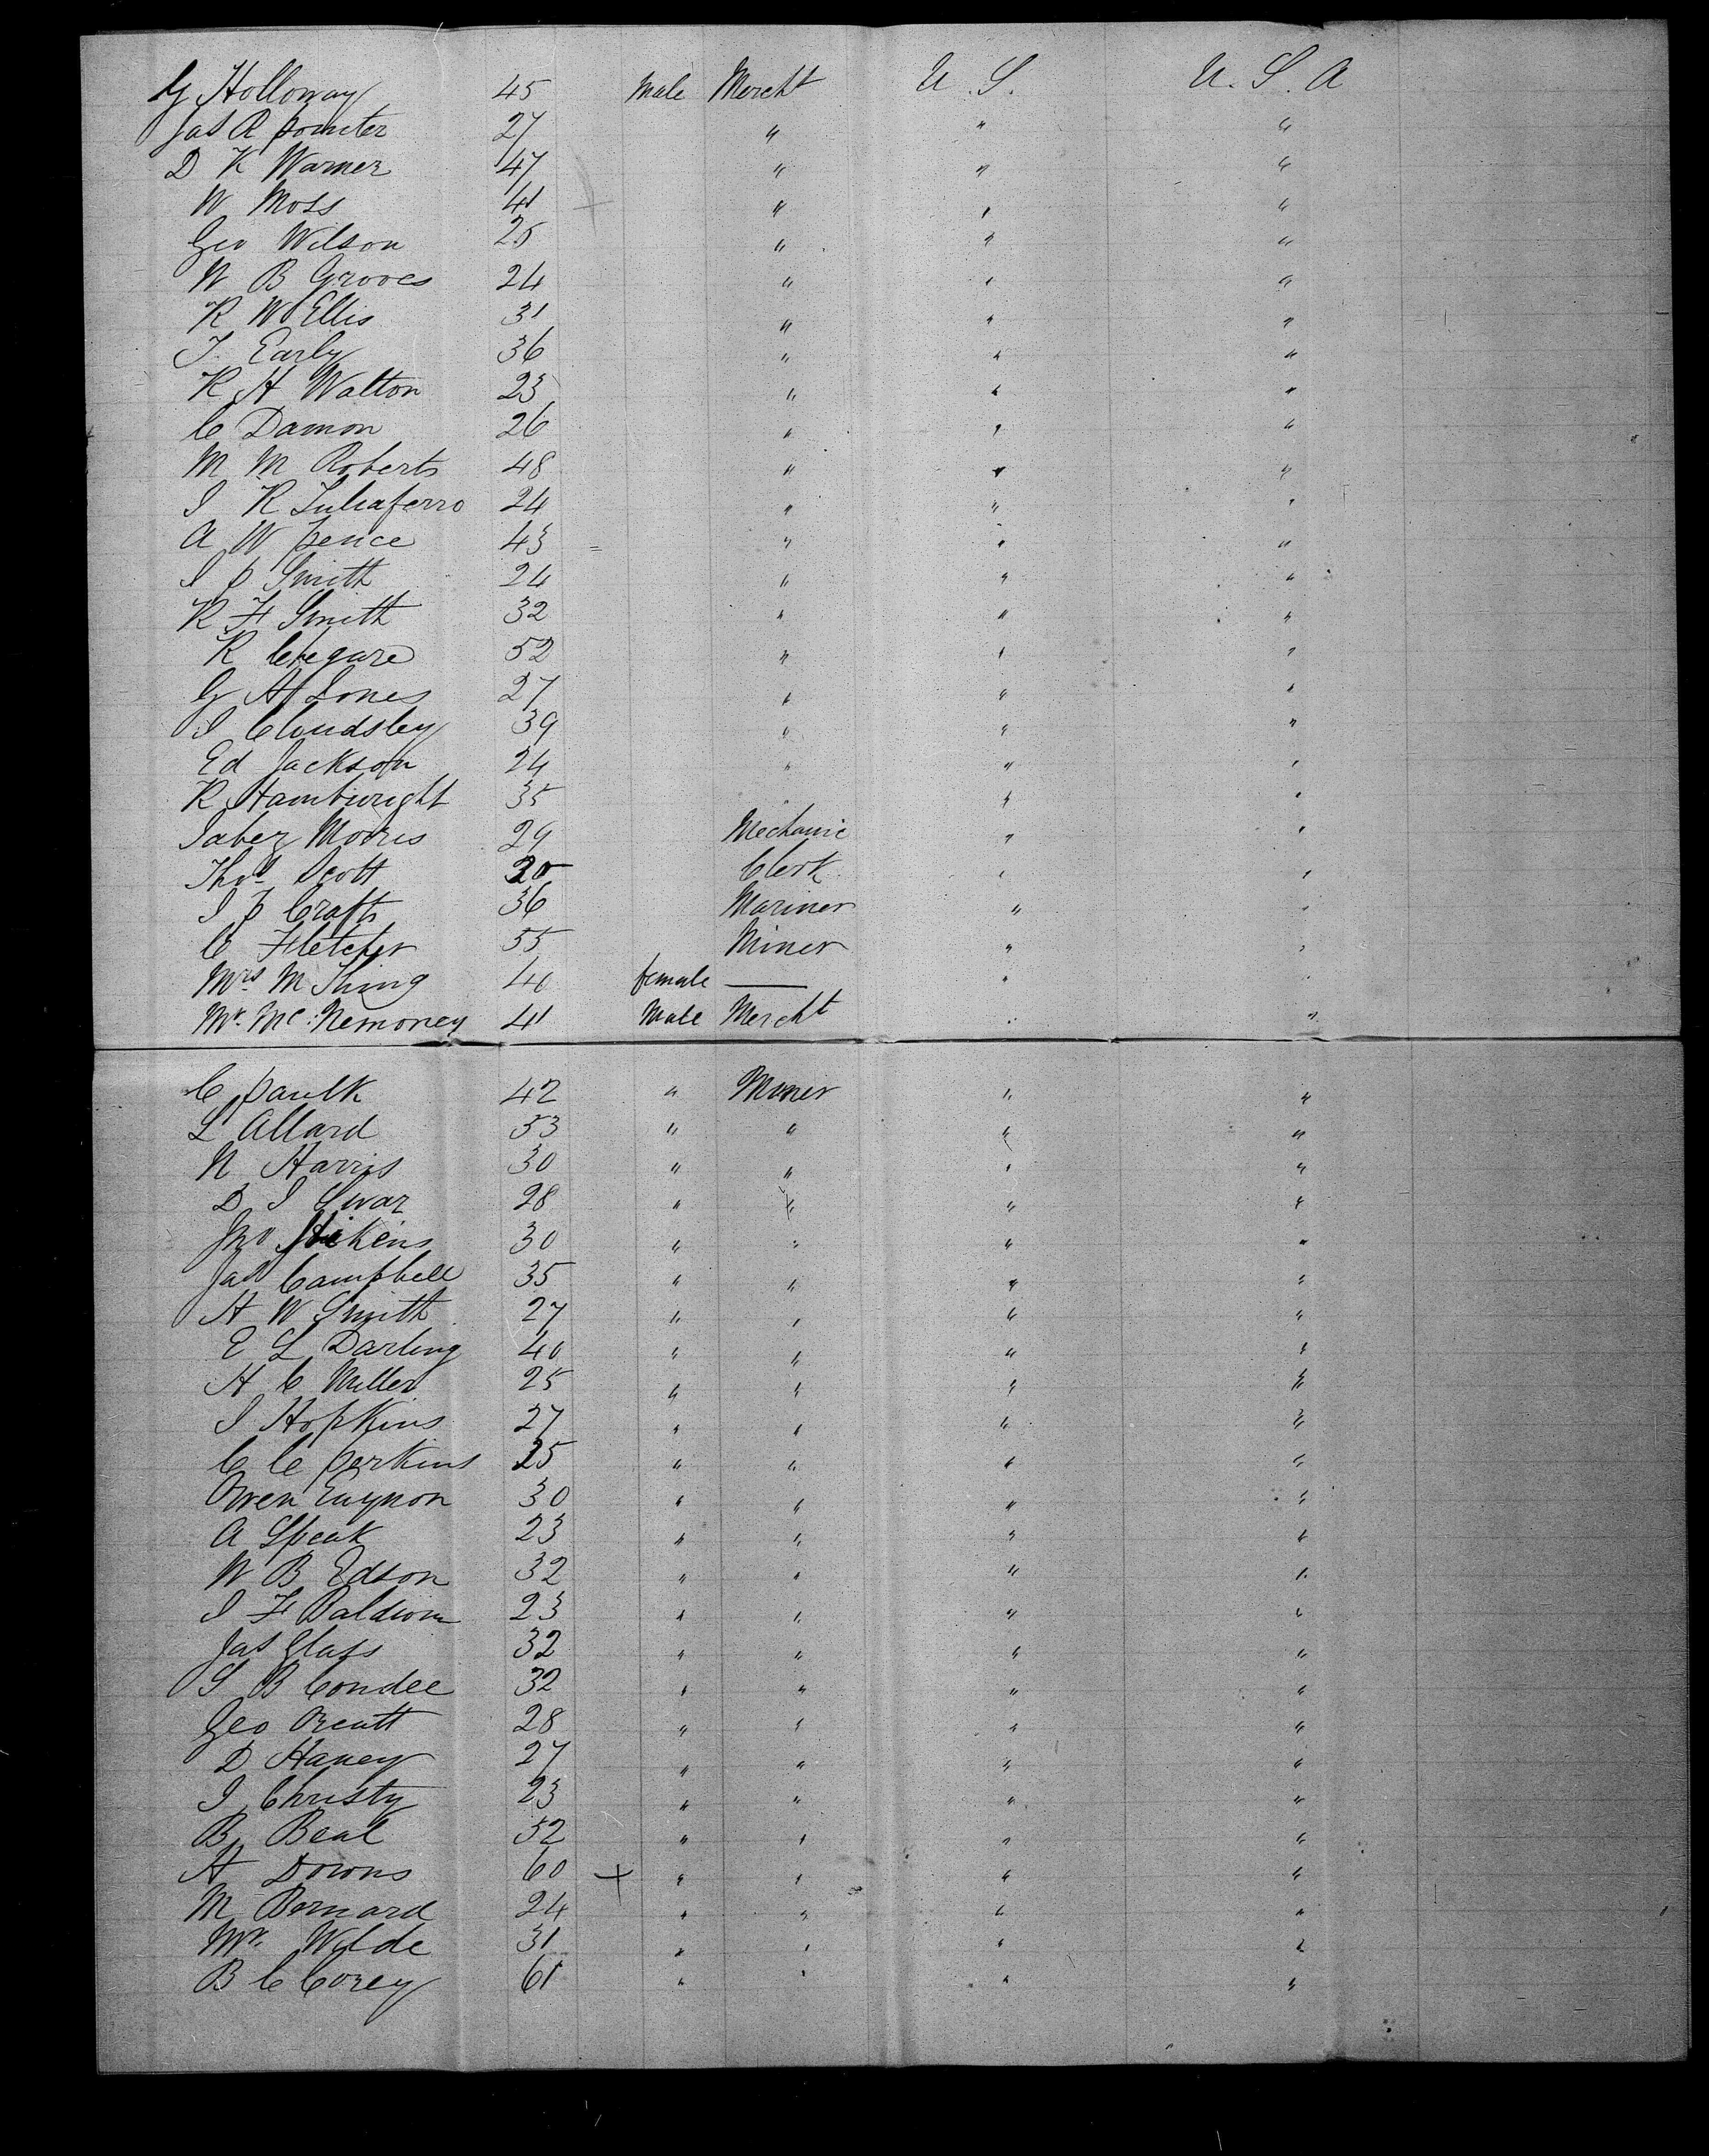 G Holloway 45 Male Mercht U.S. U.S.A
Jas R Pointer 27 " " "
D K Warner 47 " " "
W Moss 41 " " "
Geo Wilson 25 " " "
W B Grooes 24 " " "
R W Ellis 31 " " "
J. Early 36 " " "
R H Walton 23 " " "
C Damon 26 " " "
M M Roberts 48 " " "
J R Tuliaferro 24 " " "
A W Pence 43 " " "
J P Smith 24 " " "
R F Smith 32 " " "
R 52 " " "
G H Jones 27 " " "
J Cloudsley 39 " " "
Ed Jackson 24 " " "
R Hambright 35 " " "
Jabez Morris 29 Mechanic " "
Thos Scott Clerk " "
J P Crafts 36 Mariner " "
C Fletcher 55 Miner " "
Mrs. M King 40 female — " "
Mr. Mc. Nemoney 41 Male Mercht " "
C Paulk 42 " Miner " "
L Allard 53 " " " "
N Harris 30 " " " "
D J 28 " " " "
Jno Aikens 30 " " " "
Jas Campbell 35 " " " "
H W Smith 27 " " " "
E L Darling 40 " " " "
H C Miller 25 " " " "
J Hopkins 27 " " " "
C C Perkins 25 " " " "
Owen 30 " " " "
A Speak 23 " " " "
W B Edson 32 " " " "
J F Baldwin 23 " " " "
Jas Glass 32 " " " "
S B Condee 32 " " " "
Geo Orcutt 28 " " " "
D Haney 27 " " " "
J Christy 23 " " " "
B Beal 52 " " " "
H Downs 60 + " " " "
M Bernard 24 " " " "
Mr. Wilde 31 " " " "
B C Corey 61 " " " "